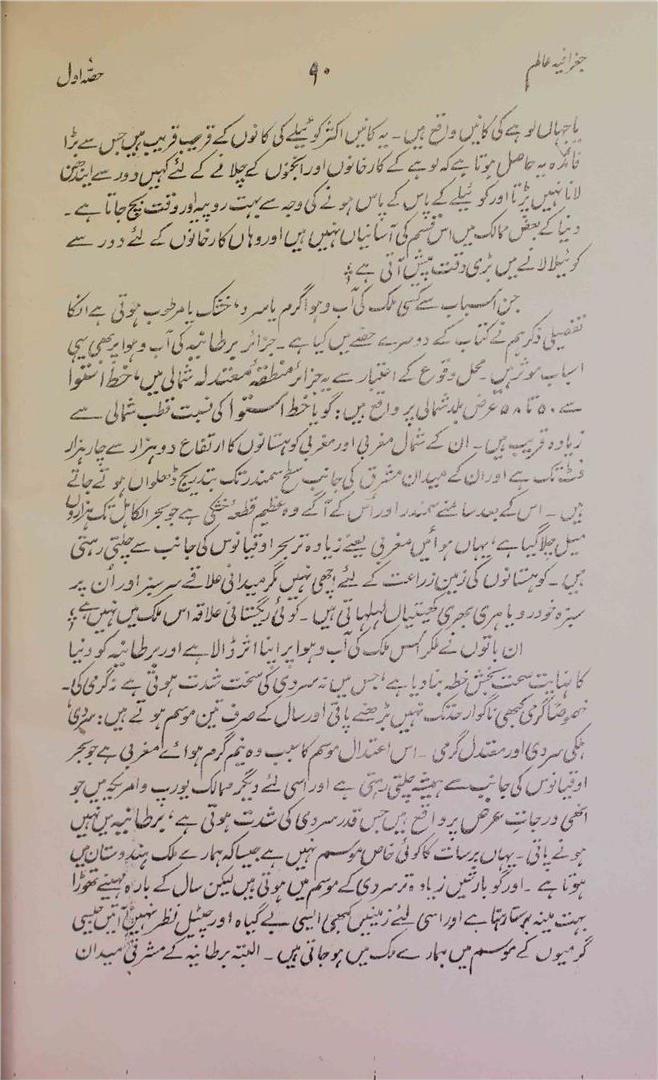 جغرافیہ عالم
۹۰
حصّہ اول
یا جہاں لوہے کی کانیں واقع ہیں۔ یہ کانیں اکثر کوئیلے کی کانوں کے قریب قریب ہیں جس سے بڑا
فائدہ یہ حاصل ہوتا ہے کہ لوہے کے کارخانوں اور انجنوں کے چلانے کے لئے کہیں دور سے ایندھن
لانا نہیں پڑتا اور کوئیلے کے پاس کے پاس ہونے کی وجہ سے بہت روپیہ اور وقت بچ جاتا ہے۔
دنیا کے بعض ممالک میں اس قسم کی آسانیاں نہیں ہیں اور وہاں کارخانوں کے لئے دور سے
کوئیلا لانے میں بڑی دقت پیش آتی ہے؛
جن اسباب سے کسی ملک کی آب و ہوا گرم یا سرد، خشک یا مرطوب ہوتی ہے انکا
تفصیلی ذکر ہم نے کتاب کے دوسرے حصّے میں کیا ہے۔ جزائر برطانیہ کی آب و ہوا پر بھی یہی
اسباب موثر ہیں۔ محل وقوع کے اعتبار سے یہ جزائر منطقۂ معتدلہ شمالی میں، خط استوا
سے ۵۰ تا ۵۸ عرض بلد شمالی پر واقع ہیں: گویا خط استوا کی نسبت قطب شمالی سے
زیادہ قریب ہیں۔ ان کے شمال مغربی اور مغربی کوہستانوں کا ارتفاع دو ہزار سے چار ہزار
فٹ تک ہے اور ان کے میدان مشرق کی جانب سطح سمندر تک بتدریج ڈھلواں ہوتے جاتے
ہیں۔ اس کے بعد سامنے سمندر اور اُس کے آگے وہ عظیم قطعہ خشکی ہے جو بحر الکاہل تک ہزاروں
میل چلا گیا ہے، یہاں ہوائیں مغربی یعنے زیادہ تر بحر اوقیانوس کی جانب سے چلتی رہتی
ہیں۔ کوہستانوں کی زمین زراعت کے لیئے اچھی نہیں مگر میدانی علاقے سرسبز اور اُن پر
سبزہ خود رو یا ہری بھری کھیتیاں لہلہاتی ہیں۔ کوئی ریگستانی علاقہ اس ملک میں نہیں ہے؛
ان باتوں نے ملکر اس ملک کی آب و ہوا پر اپنا اثر ڈالا ہے اور برطانیہ کو دنیا
کا نہایت صحت بخش خطہ بنا دیا ہے، جس میں نہ سردی کی سخت شدت ہوتی ہے نہ گرمی کی۔
خصوصاً گرمی کبھی ناگوار حد تک نہیں بڑھنے پاتی اور سال کے صرف تین موسم ہوتے ہیں: سردی،
ہلکی سردی اور معتدل گرمی۔ اس اعتدال موسم کا سبب وہ نیم گرم ہوائے مغربی ہے جو بحر
اوقیانوس کی جانب سے ہمیشہ چلتی رہتی ہے اور اسی لئے دیگر ممالک یورپ و امریکہ میں جو
انھی درجات عرض پر واقع ہیں جس قدر سردی کی شدت ہوتی ہے، برطانیہ میں نہیں
ہونے پاتی۔ یہاں برسات کا کوئی خاص موسم نہیں ہے جیسا کہ ہمارے ملک ہندوستان میں
ہوتا ہے۔ اور گو بارشیں زیادہ تر سردی کے موسم میں ہوتی ہیں لیکن سال کے بارہ مہینے تھوڑا
بہت مینہ برستا رہتا ہے اور اسی لئے زمینیں کبھی ایسی بے گیاہ اور چٹیل نظر نہیں آتیں جیسی
گرمیوں کے موسم میں ہمارے ملک میں ہو جاتی ہیں۔ البتہ برطانیہ کے مشرقی میدان